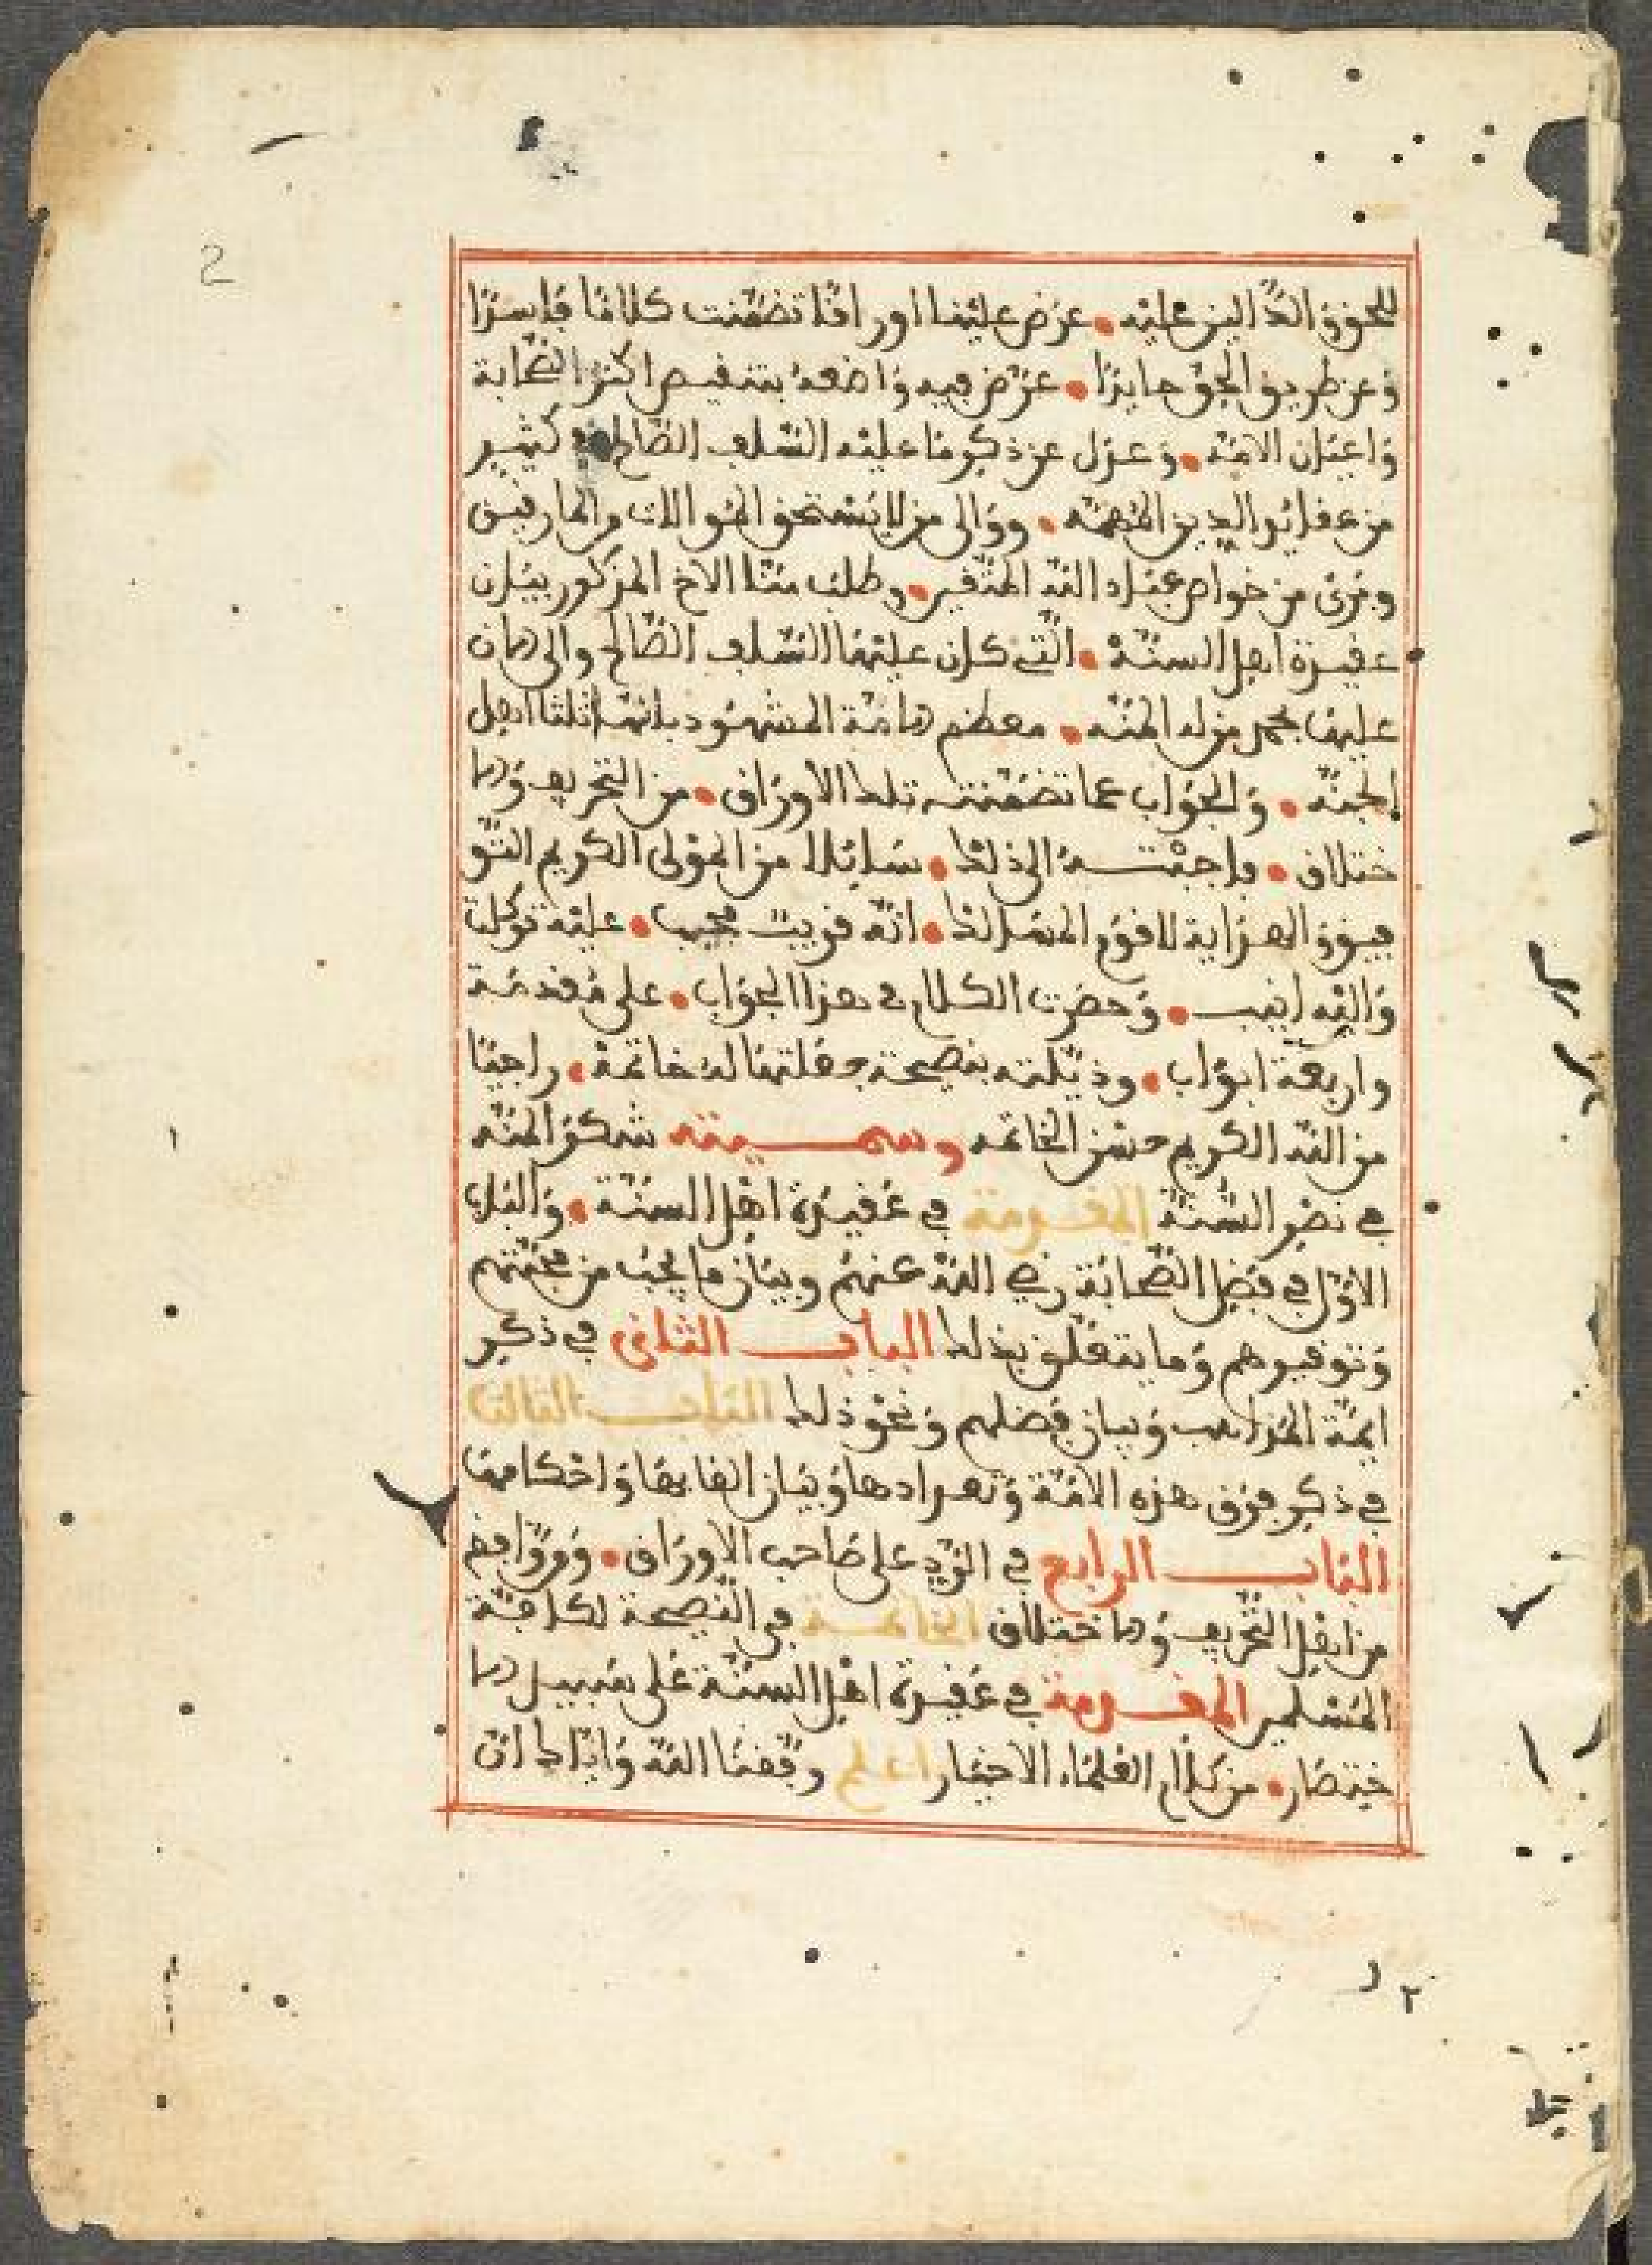 2
للحق والدالين عليه • عرض علينا اوراقا تضمنت كلاما فاسدا
وعن طريق الحق حايدا • عرض فيه واضعه بتنقيص اكثر الصحابة
واعيان الامة • وعدل عن ذكر ما عليه السلف الصالح في كثير
من عقايد الدين المهمة • ووالى من لا يستحق الموالات والمارقين
وتبرى من خواص عباد الله المتقين • وطلب منا الاخ المذكور بيان
عقيدة اهل السنة • التي كان عليها السلف الصالح والى الان
عليها بحمد من له المنة • معظم الامة المشهود بانها ثلثا اهل
الجنة • والجواب عما تضمنته تلك الاوراق • من التحريف والا
ختلاق • فاجبته الى ذلك • سائلا من المولى الكريم التو
فيق والهداية لاقوم المسالك • انه قريب مجيب • عليه توكلت
واليه انيب • وحصرت الكلام في هذا الجواب • على مقدمة
واربعة ابواب • وذيلته بنصيحة جعلتها له خاتمة • راجيا
من الله الكريم حسن الخاتمه وسميته شكر المنه
في نصر السنة المقدمة في عقيدة اهل السنة • والباب
الاول في فضل الصحابة رضي الله عنهم وبيان ما يجب من محبتهم
وتوقيرهم وما يتعلق بذلك الباب الثاني في ذكر
ايمة المذاهب وبيان فضلهم ونحو ذلك الباب الثالث
في ذكر فرق هذه الامة وتعدادها وبيان القابها واحكامها
الباب الرابع في الرد على صاحب الاوراق • ومن وافقه
من اهل التحريف والاختلاق الخاتمة في النصيحة لكافة
المسلمين المقدمة في عقيدة اهل السنة على سبيل الا
ختصار • من كلام العلماء الاخيار اعلم وفقنا الله واياك ان
٢